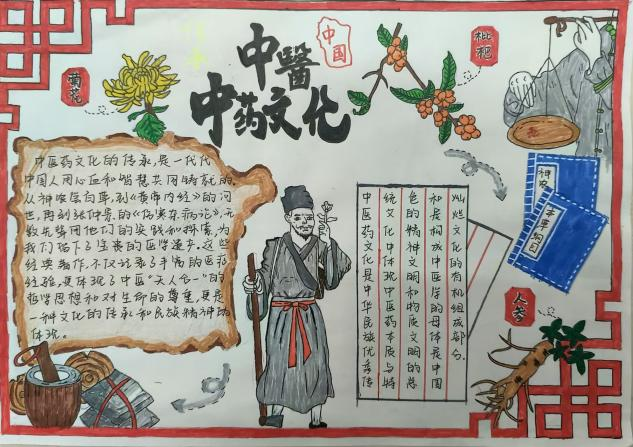 中醫
中国
中药文化
菊花
枇杷
中医药文化的传承,是一代代
中国人用心血和智慧共同铸就的.
从神农尝百草,到《黄帝内经》的问
世,再到张仲景的《伤寒杂病论》,无
数先贤用他们的实践和探索,为
我们留下了宝贵的医学遗产,这些
经典著作,不仅记录了丰富的医疗
经验,更体现了中医"天人合一"的
哲学思想和对生命的尊重,更是
一种文化的传承和民族精神的
体现.
中医药文化是中华民族优秀传
统文化中体现中医药本质与特
色的精神文明和物质文明的总
和是构成中医学的母体是中国
灿烂文化的有机组成部分.
神农
本草纲目
人参